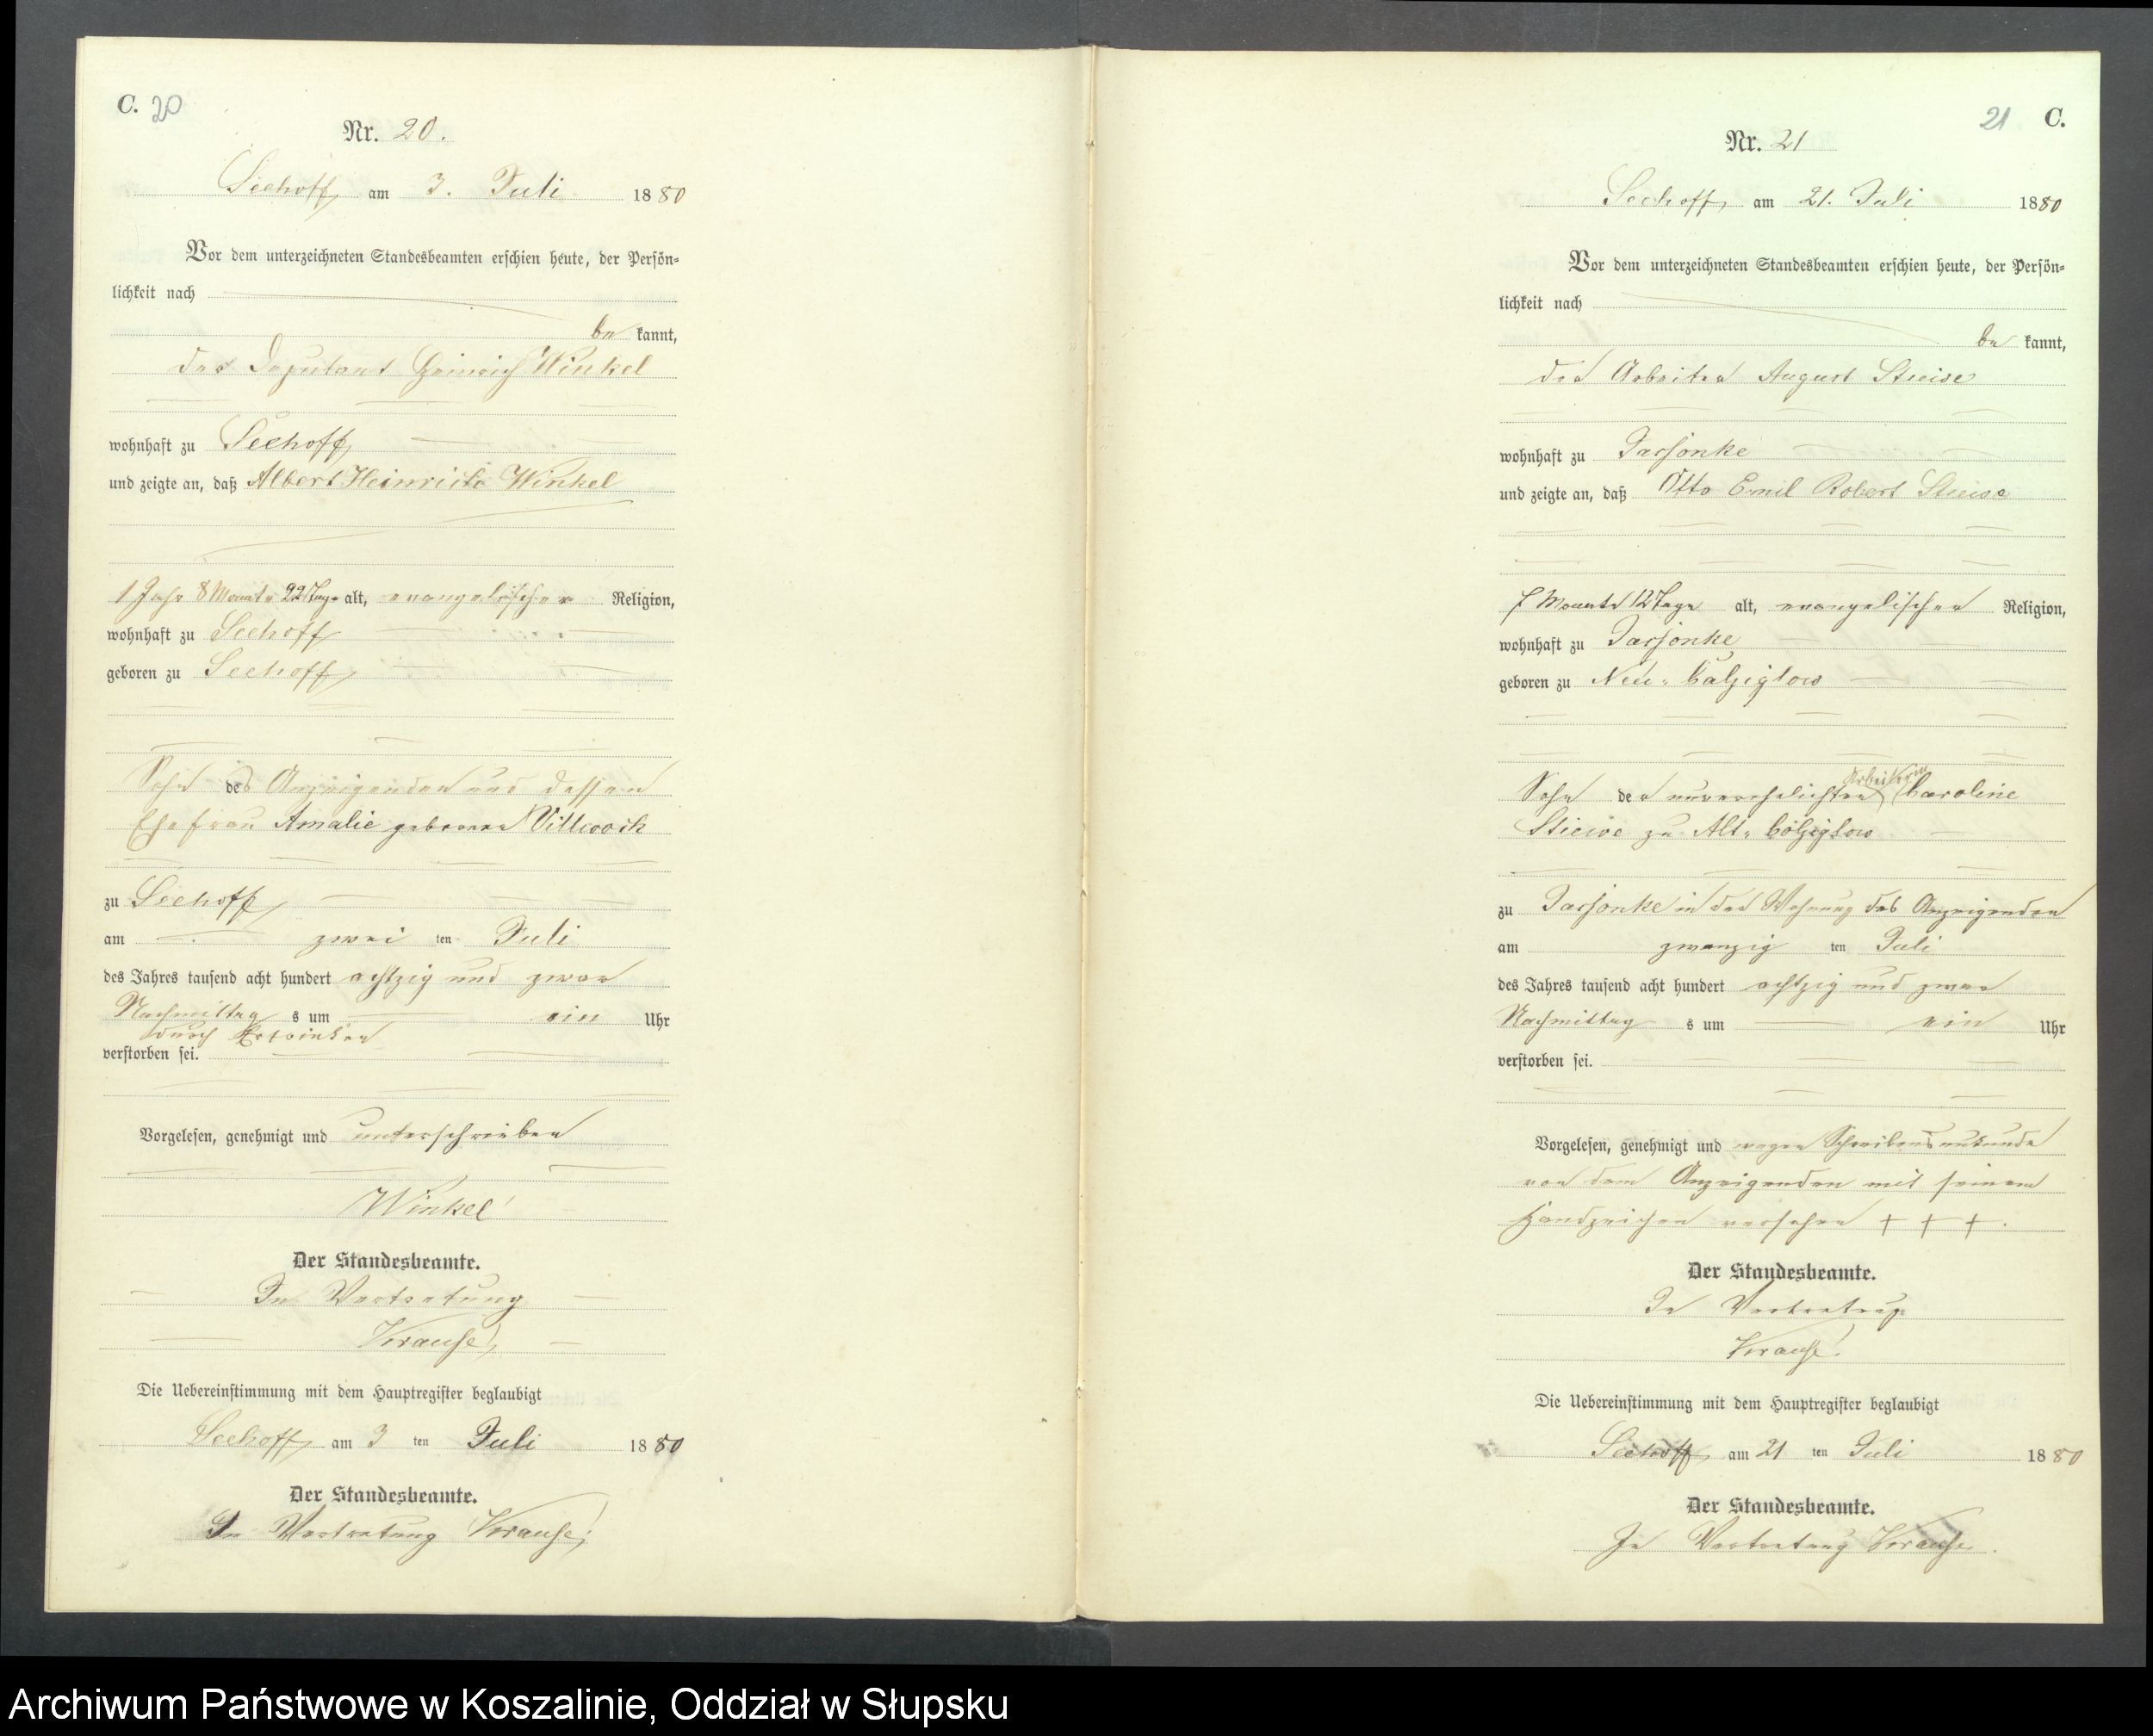 C. 20
Nr. 20.
Seehoff am 3. Juli 1880
Vor dem unterzeichneten Standesbeamten erschien heute, der Persön-
lichkeit nach
be kannt,
der Deputant Heinrich Winkel
wohnhaft zu Seehoff
und zeigte an, daß Albert Heinrich Winkel
1 Jahr 8 Monate 22 Tage alt, evangelischer Religion,
wohnhaft zu Seehoff
geboren zu Seehoff
Sohn des Anzeigenden und dessen
Ehefrau Amalie geborenen Villwock
zu Seehoff
am zwei ten Juli
des Jahres tausend acht hundert achtzig und zwar
Nachmittag s um ein Uhr
durch Ertrinken
verstorben sei.
Vorgelesen, genehmigt und unterschrieben
Winkel
Der Standesbeamte.
In Vertretung
Krause
Die Uebereinstimmung mit dem Hauptregister beglaubigt
Seehoff am 3 ten Juli 1880
Der Standesbeamte.
In Vertretung Krause
21 C.
Nr. 21
Seehoff am 21. Juli 1880
Vor dem unterzeichneten Standesbeamten erschien heute, der Persön-
lichkeit nach
be kannt,
der Arbeiter August
wohnhaft zu Darsonke
und zeigte an, daß Otto Emil Robert
7 Monate 12 Tage alt, evangelischer Religion,
wohnhaft zu Darsonke
geboren zu Neu-Colziglow
Sohn der unverehelichten Arbeiterin Caroline
Stiewe zu Alt-Colziglow
zu Darsonke in der Wohnung des Anzeigenden
am zwanzig ten Juli
des Jahres tausend acht hundert achtzig und zwar
Nachmittag s um ein Uhr
verstorben sei.
Vorgelesen, genehmigt und wegen Schreibensunkunde
von dem Anzeigenden mit seinem
Handzeichen versehen + + + .
Der Standesbeamte.
In Vertretung
Krause.
Die Uebereinstimmung mit dem Hauptregister beglaubigt
Seehoff am 21 ten Juli 1880
Der Standesbeamte.
In Vertretung Krause.
Archiwum Państwowe w Koszalinie, Oddział w Słupsku